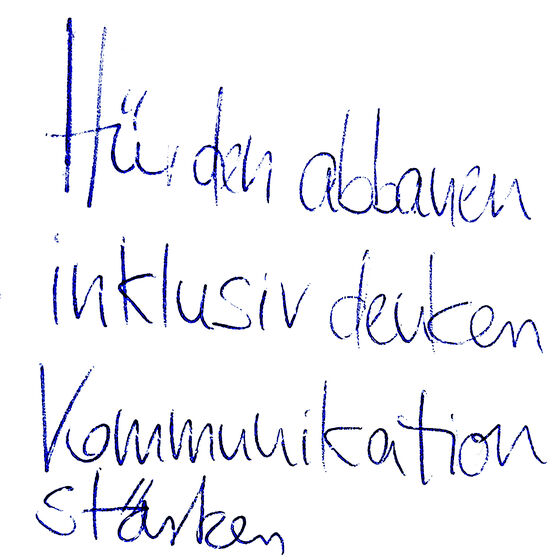 Hürden abbauen
inklusiv denken
Kommunikation
stärken